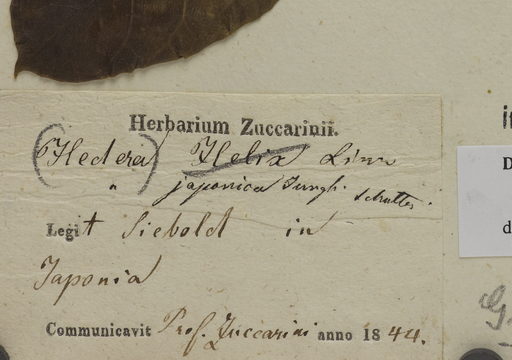 Herbarium Zuccarinii.
(Hedera) Helix Linn
" japonica Jungh.
Legit Siebold in
Japonia
Communicavit Prof. Zuccarini anno 1844.